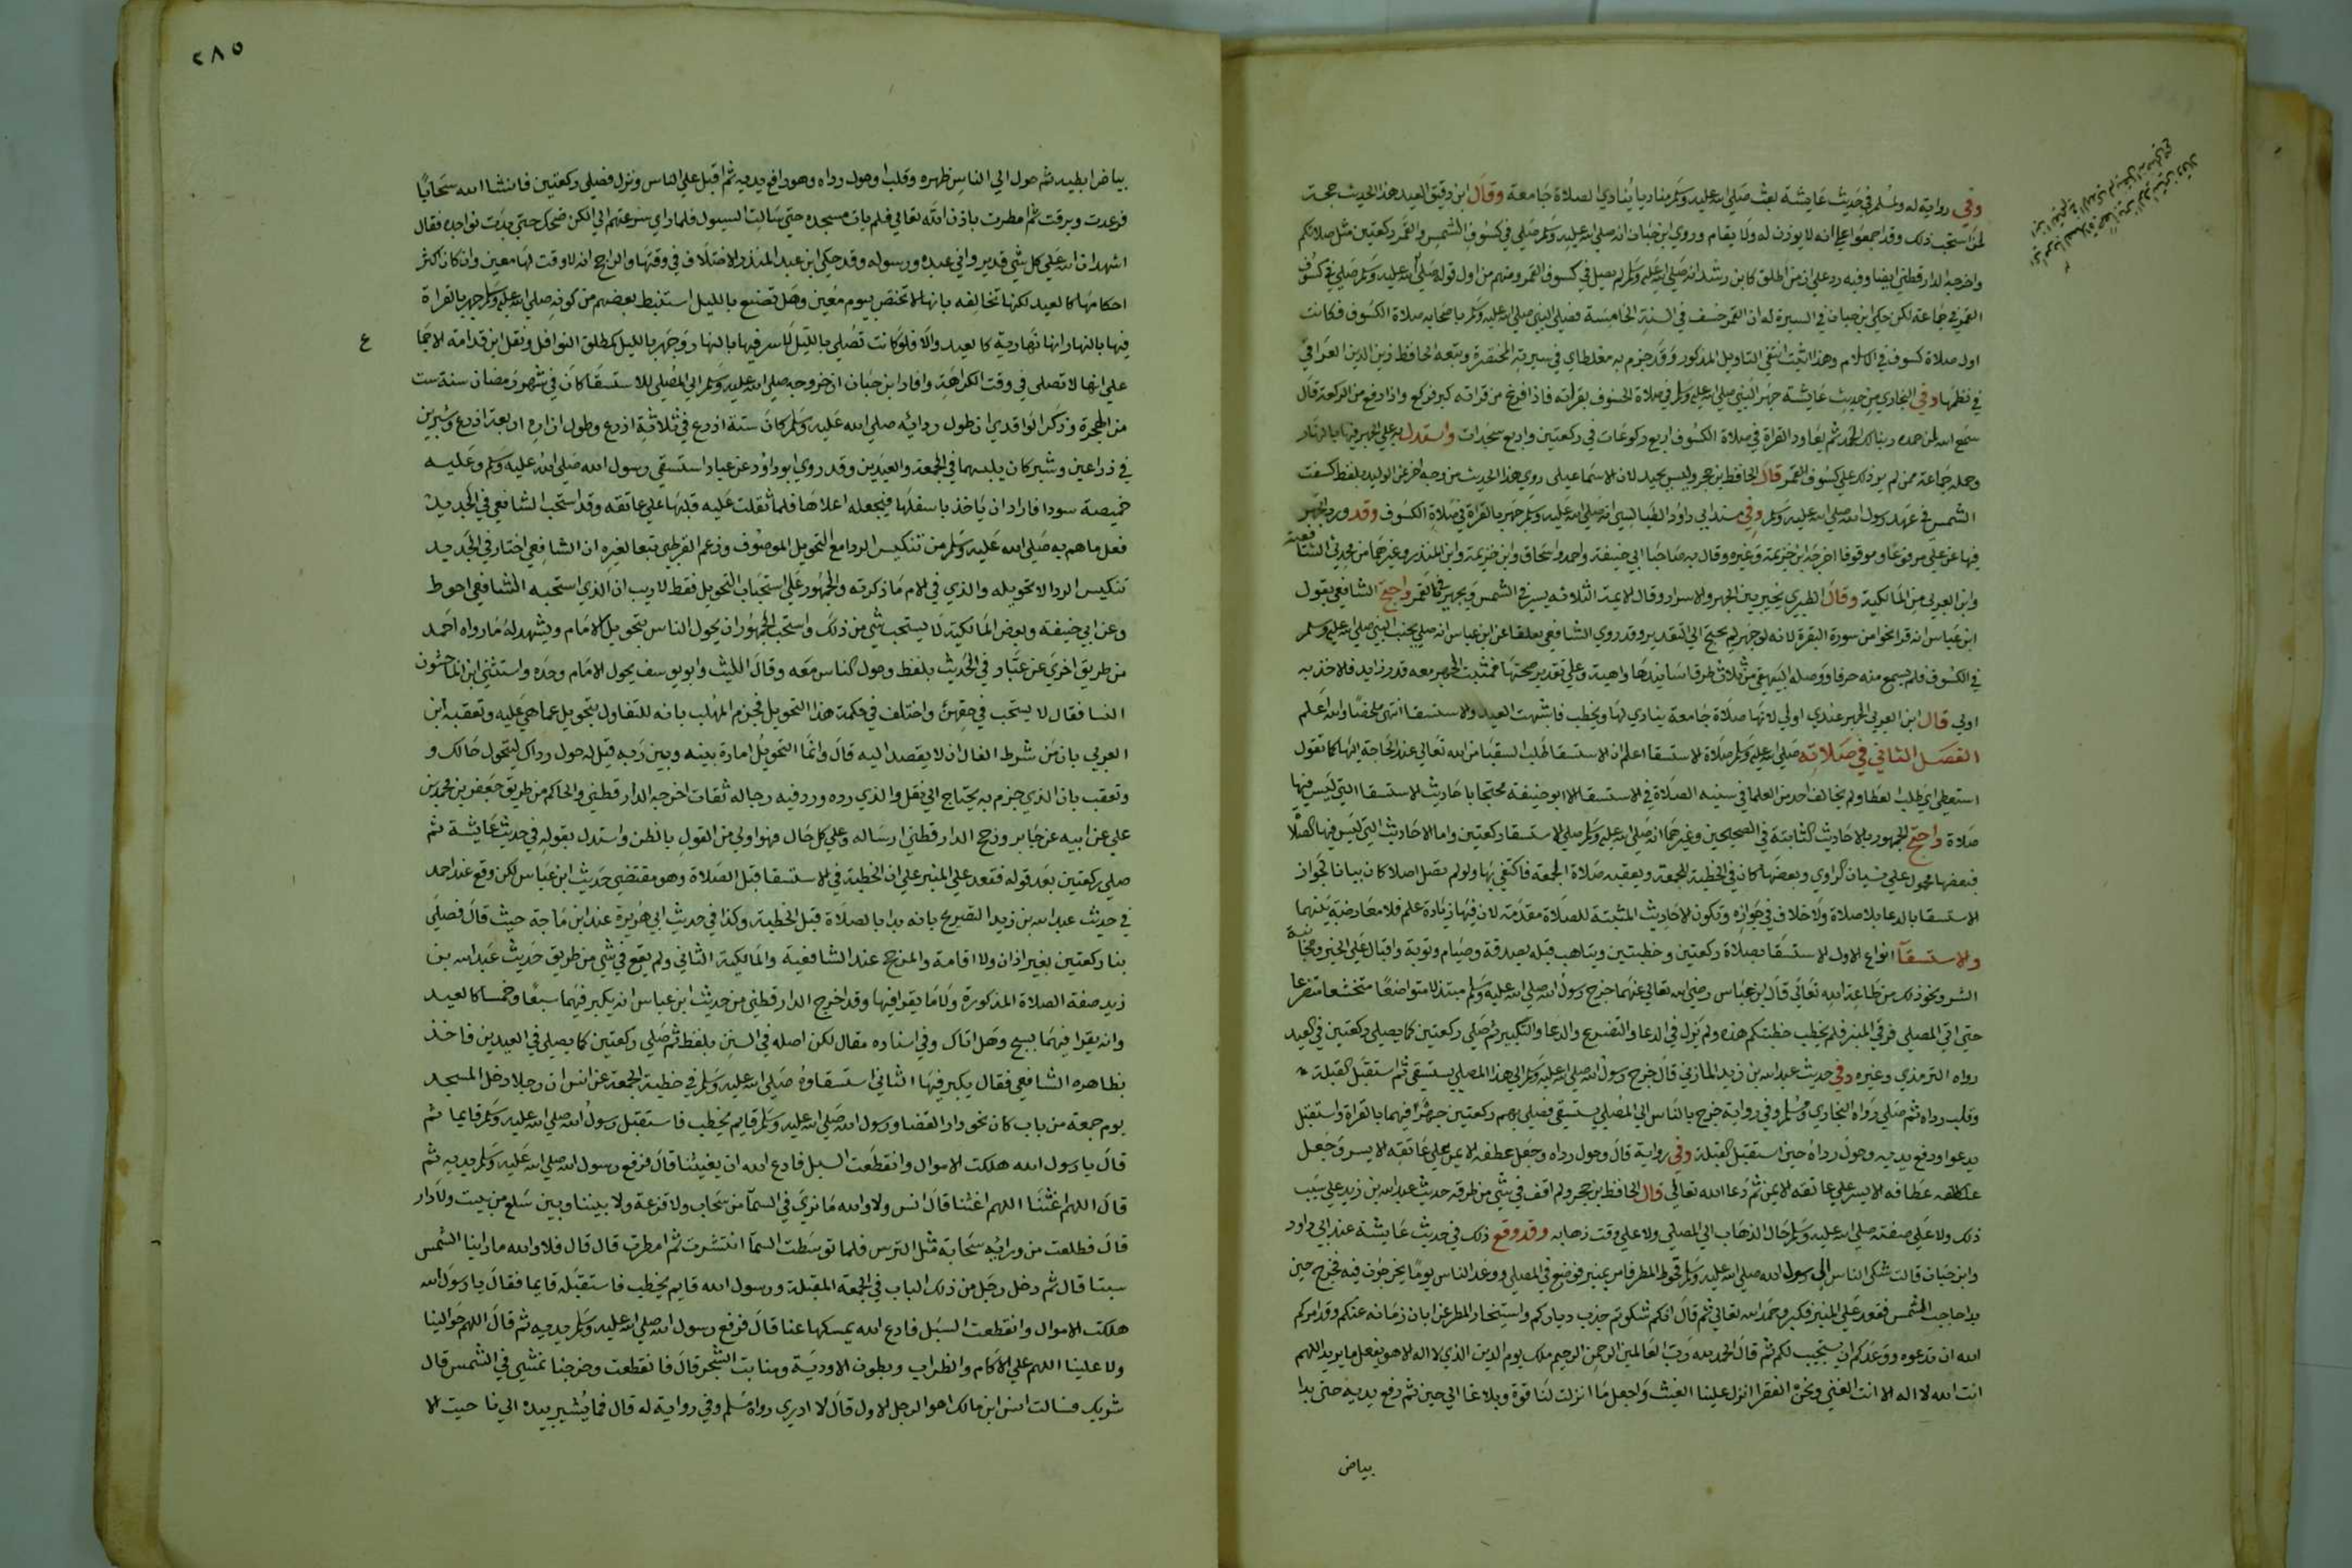 وفي رواية له ولمسلم في حديث عايشة بعث صلي الله عليه وسلم مناديا ينادي الصلاة جامعة وقال ابن دقيق العيد هذا الحديث حجة
لمن استحب ذلك وقد اجمعوا علي انه لا يوذن له ولا يقام وروي ابن حبان انه صلي الله عليه وسلم صلي في كسوف الشمس والقمر ركعتين مثل صلاتكم
واخرجه الدارقطني ايضا وفيه رد علي من اطلق كابن رشد انه صلي الله عليه وسلم لم يصل في كسوف القمر ومنهم من اول قوله صلي الله عليه وسلم صلي في كسوف
القمر في جماعة لكن حكي ابن حبان في السيرة له ان القمر خسف في السنة الخامسة فصلي النبي صلي الله عليه وسلم باصحابه صلاة الكسوف فكانت
اول صلاة كسوف في الاسلام وهذا ان ثبت انتفي التاويل المذكور وقد جزم به مغلطاي في سيرته المختصرة وتبعه الحافظ زين الدين العراقي
في نظمها وفي البخاري من حديث عايشة جهر النبي صلي الله عليه وسلم في صلاة الخسوف بقرأته فاذا فرغ من قرأته كبر فركع واذا رفع من الركعة قال
سمع الله لمن حمده ربنا لك الحمد ثم يعاود القراة في صلاة الكسوف اربع ركوعات في ركعتين واربع سجدات واستدل به علي الجهر فيها بالنهار
وحمله جماعة ممن لم ير ذلك علي كسوف القمر قال الحافظ بن حجر وليس بجيد لان الاسماعيلي روي هذا الحديث من وجه اخر عن الوليد بلفظ كسفت
الشمس في عهد رسول الله صلي الله عليه وسلم وفي مسند ابي داود الطيالسي انه صلي الله عليه وسلم جهر بالقراة في صلاة الكسوف وقد ورد الجهر
فيها عن علي مرفوعا وموقوفا اخرجه ابن خزيمة وغيره وقال به صاحبا ابي حنيفة واحمد واسحاق وابن خزيمة وابن المنذر وغيرهما من محدثي الشافعية
وابن العربي من المالكية وقال الطبري يخير بين الجهر والاسرار وقال الايمة الثلاثه يسر في الشمس ويجهر في القمر واحتج الشافعي بقول
ابن عباس انه قرا نحوا من سورة البقرة لانه لو جهر لم يحتج الي التقدير وقد روي الشافعي تعليقا عن ابن عباس انه صلي بجنب النبي صلي الله عليه وسلم
في الكسوف فلم يسمع منه حرفا ووصله البيهقي من ثلاث طرق اسانيدها واهية وعلي تقدير صحتها فمثبت الجهر معه قدر زايد فالاخذ به
اولي قال ابن العربي الجهر عندي اولي لانها صلاة جامعة ينادي لها ويخطب فاشبهت العيد والاستسقا انتهي ملخصا والله اعلم
الفصل الثاني في صلاته صلي الله عليه وسلم صلاة الاستسقا اعلم ان الاستسقا طلب السقيا من الله تعالي عند الحاجة اليها كما تقول
استعطي اي طلب العطا ولم يخالف احد من العلما في سنيه الصلاة في الاستسقا الا ابو حنيفة محتجا باحاديث الاستسقا التي ليس فيها
صلاة واحتج الجمهور بالاحاديث الثابتة في الصحيحين وغيرهما انه صلي الله عليه وسلم صلي الاستسقا ركعتين واما الاحاديث التي ليس فيها الصلاة
فبعضها محمول علي نسيان الراوي وبعضها كان في الخطبة للجمعة ويعقبه صلاة الجمعة فاكتفي بها ولو لم يصل اصلا كان بيانا لجواز
الاستسقا بالدعا بلا صلاة ولا خلاف في جوازه وتكون الاحاديث المثبتة للصلاة مقدمة لان فيها زيادة علم فلا معارضة بينهما
والاستسقا انواع الاول الاستسقا بصلاة ركعتين وخطبتين ويتاهب قبله بصدقة وصيام وتوبة واقبال علي الخير ومجانبة
الشر ونحو ذلك من طاعة الله تعالي قال ابن عباس رضي الله تعالي عنهما خرج رسول الله صلي الله عليه وسلم مبتذلا متواضعا متخشعا متضرعا
حتي اتي المصلي فرقي المنبر فلم يخطب خطبتكم هذه ولم يزل في الدعا والتضرع والدعا والتكبير ثم صلي ركعتين كما يصلي ركعتين في العيد
رواه الترمذي وغيره وفي حديث عبد الله بن زيد المازني قال خرج رسول الله صلي الله عليه وسلم الي هذا المصلي يستسقي ثم استقبل القبلة
وقلب رداه ثم صلي رواه البخاري ومسلم وفي رواية خرج بالناس الي المصلي يستسقي فصلي بهم ركعتين جهرا فيهما بالقراة واستقبل
يدعوا ورفع يديه وحول رداه حين استقبل القبلة وفي رواية قال وحول رداه وجعل عطافه الايمن علي عاتقه الايسر وجعل
عطافه الايسر علي عاتقه الايمن ثم دعا الله تعالي قال الحافظ بن حجر ولم اقف في شي من طرق حديث عبد الله بن زيد علي سبب
ذلك ولا علي صفته صلي الله عليه وسلم حال الذهاب الي المصلي ولا علي وقت ذهابه وقد وقع ذلك في حديث عايشة عند ابي داود
وابن حبان قالت شكي الناس الي رسول الله صلي الله عليه وسلم قحوط المطر فامر بمنبر فوضع في المصلي ووعد الناس يوما يخرجون فيه فخرج حين
بدا حاجب الشمس فقعد علي المنبر فكبر وحمد الله تعالي ثم قال انكم شكوتم جذب دياركم واستيخار المطر عن ابان زمانه عنكم وقد امركم
الله ان تدعوه ووعدكم ان يستجيب لكم ثم قال الحمد لله رب العالمين الرحمن الرحيم ملك يوم الدين الذي لا اله الا هو يفعل ما يريد اللهم
انت الله لا اله الا انت الغني ونحن الفقرا انزل علينا الغيث واجعل ما انزلت لنا قوة وبلاغا الي حين ثم رفع يديه حتي بدا
بياض
٢٨٥
بياض ابطيه ثم حول الي الناس ظهره وقلب او حول رداه وهو رافع يديه ثم اقبل علي الناس ونزل فصلي ركعتين فانشا الله سحابا
فرعدت وبرقت ثم امطرت باذن الله تعالي فلم يات مسجده حتي سالت السيول فلما راي سرعتهم الي الكن ضحك حتي بدت نواجده فقال
اشهد ان الله علي كل شي قدير واني عبده ورسوله وقد حكي ابن عبد المنذر الاختلاف في وقتها والراجح انه لا وقت لها معين وان كان اكثر
احكامها كالعيد لكنها تخالفه بانها لا تختص بيوم معين وهل تصنع بالليل استنبط بعضهم من كونه صلي الله عليه وسلم جهر بالقراة
فيها بالنهار انها نهارية كالعيد والا فلو كانت تصلي بالليل لاسر فيها بالنهار وجهر بالليل كمطلق النوافل ونقل ابن قدامة الاجما
ع
علي انها لا تصلي في وقت الكراهة وافاد ابن حبان ان خروجه صلي الله عليه وسلم الي المصلي للاستسقا كان في شهر رمضان سنة ست
من الهجرة وذكر الواقدي ان طول ردائه صلي الله عليه وسلم كان ستة اذرع في ثلاثة اذرع وطول ازاره اربعة اذرع وشبرين
في ذراعين وشبر كان يلبسهما في الجمعة والعيدين وقد روي ابو داود عن عباد استسقي رسول الله صلي الله عليه وسلم وعليه
خميصة سودا فاراد ان ياخذ باسفلها فيجعله اعلاها فلما ثقلت عليه قلبها علي عاتقه وقد استحب الشافعي في الجديد
فعل ما هم به صلي الله عليه وسلم من تنكيس الردا مع التحويل الموصوف وزعم القرطبي تبعا لغيره ان الشافعي اختار في الجديد
تنكيس الردا لا تحويله والذي في الام ما ذكرته والجمهور علي استحباب التحويل فقط لا ريب ان الذي استحبه الشافعي احوط
وعن ابي حنيفة وبعض المالكية لا يستحب شي من ذلك واستحب الجمهور ان يحول الناس بتحويل الامام ويشهد له ما رواه احمد
من طريق اخري عن عباد في الحديث بلفظ وحول الناس معه وقال الليث وابو يوسف يحول الامام وحده واستثني ابن الماجشون
النسا فقال لا يستحب في حقهن واختلف في حكمة هذا التحويل فجزم المهلب بانه للتفاول بتحويل عما هي عليه وتعقبه ابن
العربي بان من شرط الفال ان لا يقصد اليه قال وانما التحويل امارة بينه وبين ربه قيل له حول رداك ليتحول حالك و
وتعقب بان الذي جزم به يحتاج الي نقل والذي رده ورد فيه رجاله ثقات اخرجه الدارقطني والحاكم من طريق جعفر بن محمد بن
علي عن ابيه عن جابر ورجح الدارقطني ارساله وعلي كل حال فهو اولي من القول بالظن واستدل بقوله في حديث عايشة ثم
صلي ركعتين بعد قوله فقعد علي المنبر علي ان الخطبة في الاستسقا قبل الصلاة وهو مقتضي حديث ابن عباس لكن وقع عند احمد
في حديث عبد الله بن زيد التصريح بانه بدا بالصلاة قبل الخطبة وكذا في حديث ابي هريرة عند ابن ماجة حيث قال فصلي
بنا ركعتين بغير اذان ولا اقامة والمرجح عند الشافعية والمالكية الثاني ولم يقع في شي من طريق حديث عبد الله بن
زيد صفة الصلاة المذكورة ولا ما يقرا فيها وقد اخرج الدارقطني من حديث ابن عباس انه يكبر فيهما سبعا وخمسا كالعيد
وانه يقرا فيهما بسبح وهل اتاك وفي اسناده مقال لكن اصله في السنن بلفظ ثم صلي ركعتين كما يصلي في العيدين فاخذ
بظاهره الشافعي فقال يكبر فيها الثاني استسقاوه صلي الله عليه وسلم في خطبة الجمعة عن انس ان رجلا دخل المسجد
يوم جمعة من باب كان نحو دار القضا ورسول الله صلي الله عليه وسلم قايم يخطب فاستقبل رسول الله صلي الله عليه وسلم قايما ثم
قال يا رسول الله هلكت الاموال وانقطعت السبل فادع الله ان يغيثنا قال فرفع رسول الله صلي الله عليه وسلم يديه ثم
قال اللهم اغثنا اللهم اغثنا قال انس ولا والله ما نري في السما من سحاب ولا قزعة ولا بيننا وبين سلع من بيت ولا دار
قال فطلعت من ورائه سحابة مثل الترس فلما توسطت السما انتشرت ثم امطرت قال قال فلا والله ما راينا الشمس
سبتا قال ثم دخل رجل من ذلك الباب في الجمعة المقبلة ورسول الله قايم يخطب فاستقبله قايما فقال يا رسول الله
هلكت الاموال وانقطعت السبل فادع الله يمسكها عنا قال فرفع رسول الله صلي الله عليه وسلم يديه ثم قال اللهم حوالينا
ولا علينا اللهم علي الاكام والظراب وبطون الاودية ومنابت الشجر قال فانقطعت وخرجنا نمشي في الشمس قال
شريك فسالت انس ابن مالك اهو الرجل الاول قال لا ادري رواه مسلم وفي رواية له قال فما يشير بيده الي نا حيت الا